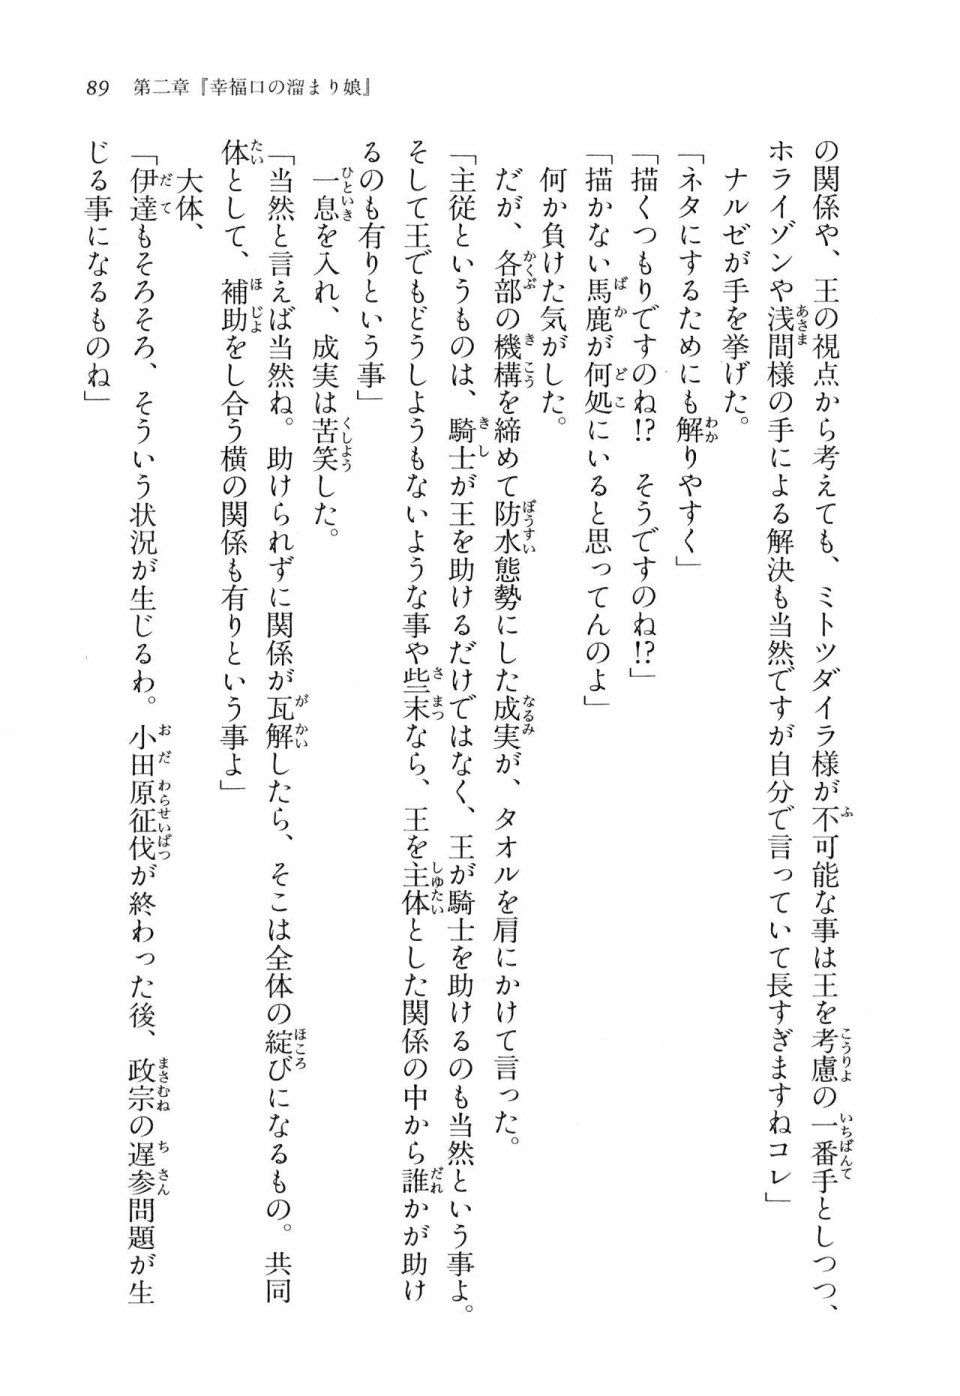 89　第二章『幸福口の溜まり娘』
の関係や、王の視点から考えても、ミトツダイラ様が不可能な事は王を考慮の一番手としつつ、
ホライゾンや浅間様の手による解決も当然ですが自分で言っていて長すぎますねコレ」
ナルゼが手を挙げた。
「ネタにするためにも解りやすく」
「描くつもりですのね!?　そうですのね!?」
「描かない馬鹿が何処にいると思ってんのよ」
何か負けた気がした。
だが、各部の機構を締めて防水態勢にした成実が、タオルを肩にかけて言った。
「主従というものは、騎士が王を助けるだけではなく、王が騎士を助けるのも当然という事よ。
そして王でもどうしようもないような事や些末なら、王を主体とした関係の中から誰かが助け
るのも有りという事」
一息を入れ、成実は苦笑した。
「当然と言えば当然ね。助けられずに関係が瓦解したら、そこは全体の綻びになるもの。共同
体として、補助をし合う横の関係も有りという事よ」
大体、
「伊達もそろそろ、そういう状況が生じるわ。小田原征伐が終わった後、政宗の遅参問題が生
じる事になるものね」